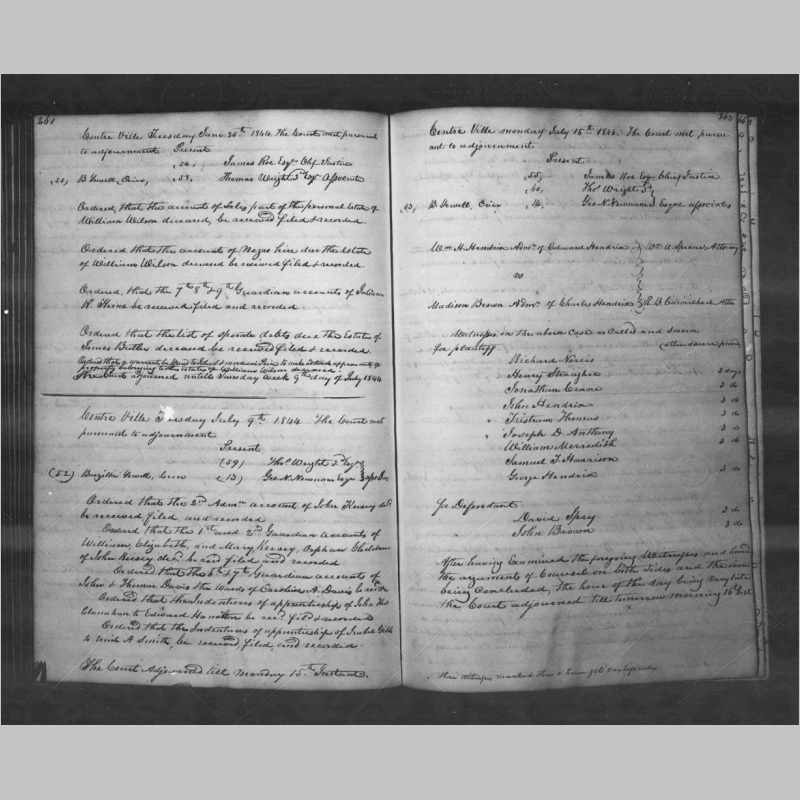 Centre Ville Tuesday June 25th 1844. The Court met pursuant
to adjournment Present
James Roe Esqr Chf Justice
B Jewell, Crier, Thomas Wright 3d Esqr Associate
Ordered, that the accounts of Sales part of the personal Estate of
William Wilson deceased, be received filed & recorded
Ordered that the accounts of Negro hire due the Estate
of William Wilson deceased be received filed & recorded
Ordered, that the 7th 8th & 9th Guardian accounts of
H. Thorne be received filed and recorded
Ordered that the list of sperate debts due the Estate of
James Butler deceased be received filed & recorded
property belonging to the estate of William Wilson deceased
The Court adjourned until Tuesday week 9th day of July 1844
Centre Ville Tuesday July 9th 1844 The Court met
pursuant to adjournment
Present
(59) Thos Wright 3d Esqr
(52) Jewell, Crier (13) Geo. N. Newnam Esqr Asso
Ordered that the 2d Admn account of John Kersey decd
be received filed and recorded
Ordered that the 1st and 2d Guardian accounts of
William, Elizabeth, and Mary Kersey, Orphan Children
of John Kersey decd. be recd filed, and recorded
Ordered that the 6th & 7th Guardian accounts of
John & Thomas Davis the Wards of Caroline A. Davis be
Ordered that the Indentures of apprenticeship of John
Clanahan to Edward be recd filed & recorded
Ordered that the Indentures of apprenticeship of
to A Smith, be received, filed, and recorded
The Court Adjourned till Monday 15th Instant.
Centre Ville monday July 15th 1844. The Court met pursu
ant to adjournment.
Present
James Roe Esqr Chief Justice
Thos Wright 3d
B. Jewell, Crier Geo N. Newnam Esqrs associates
Wm H. Hendrix Admr. of Edward Hendrix Wm A Spencer Attorney
vs
Madison Brown Admr. of Charles Hendrix R. B. Carmichael Atto
Witnesses in the above Case as Called and sworn
for plaintiff
Richard
Henry 3 days
Jonathan Crane 3 do
John Hendrix 3 do
Tristram Thomas 3 do
Joseph D. Anthony 3 do
William Merredith 3 do
Samuel T Harrison
George Hendrix 3 do
for Defendant
David Spry 3 do
John Brown 3 do
After having Examined the foregoing Witnesses and heard
the arguments of Counsel on both sides and the same
being Concluded, the hour of the day being very late
the Court adjourned till tomorrow morning 16 Inst